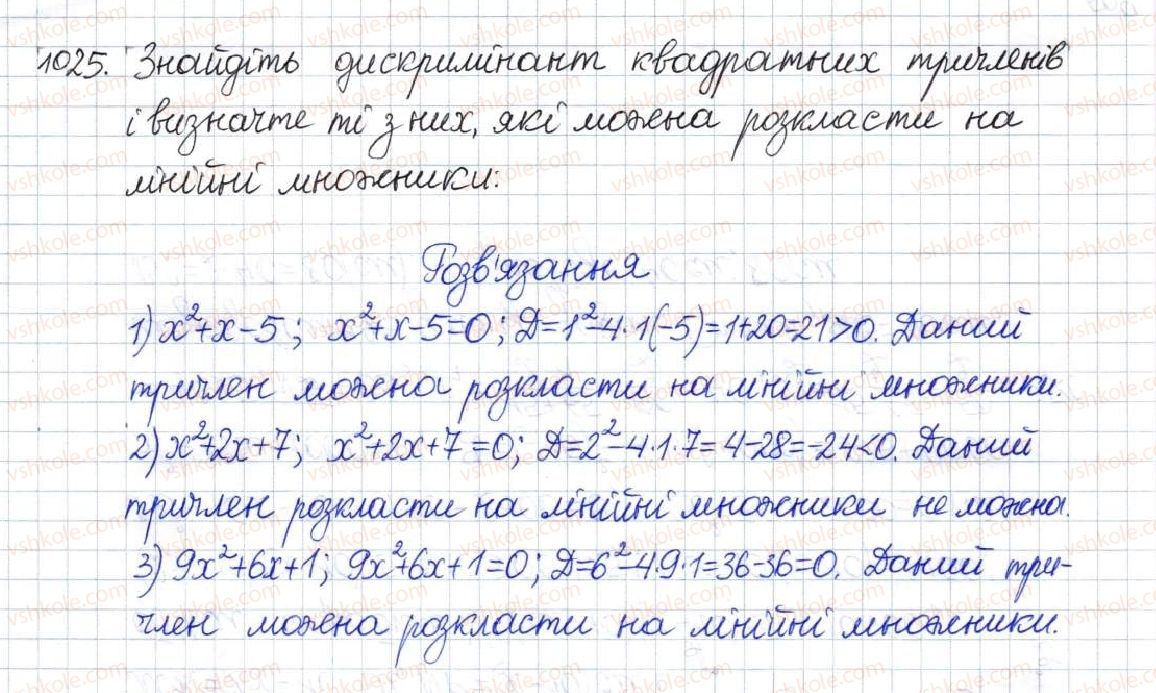 1025. Знайдіть дискримінант квадратних тричленів
і визначте ті з них, які можна розкласти на
лінійні множники:
Розв'язання
1) x²+x-5; x²+x-5=0; Д=1²-4·1(-5)=1+20=21>0. Даний
тричлен можна розкласти на лінійні множники.
2) x²+2x+7; x²+2x+7=0; Д=2²-4·1·7=4-28=-24<0. Даний
тричлен розкласти на лінійні множники не можна.
3) 9x²+6x+1; 9x²+6x+1=0; Д=6²-4·9·1=36-36=0. Даний три-
член можна розкласти на лінійні множники.